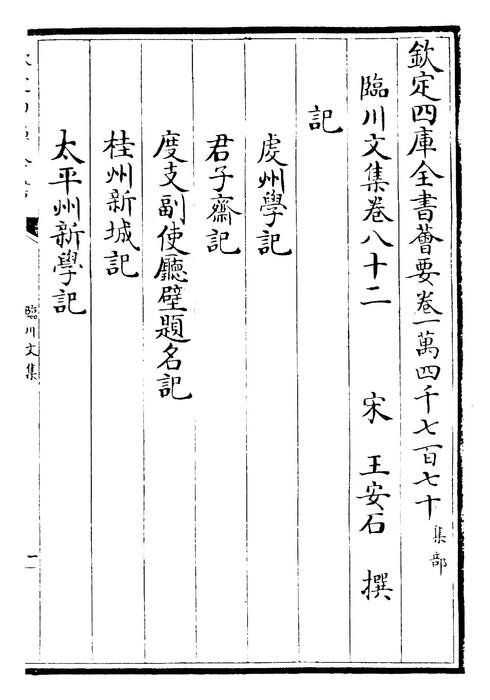 欽定四庫全書薈要卷一萬四千七百七十 集部
臨川文集卷八十二 宋 王安石 撰
記
虔州學記
君子齋記
度支副使廳壁題名記
桂州新城記
太平州新學記
臨川文集 一